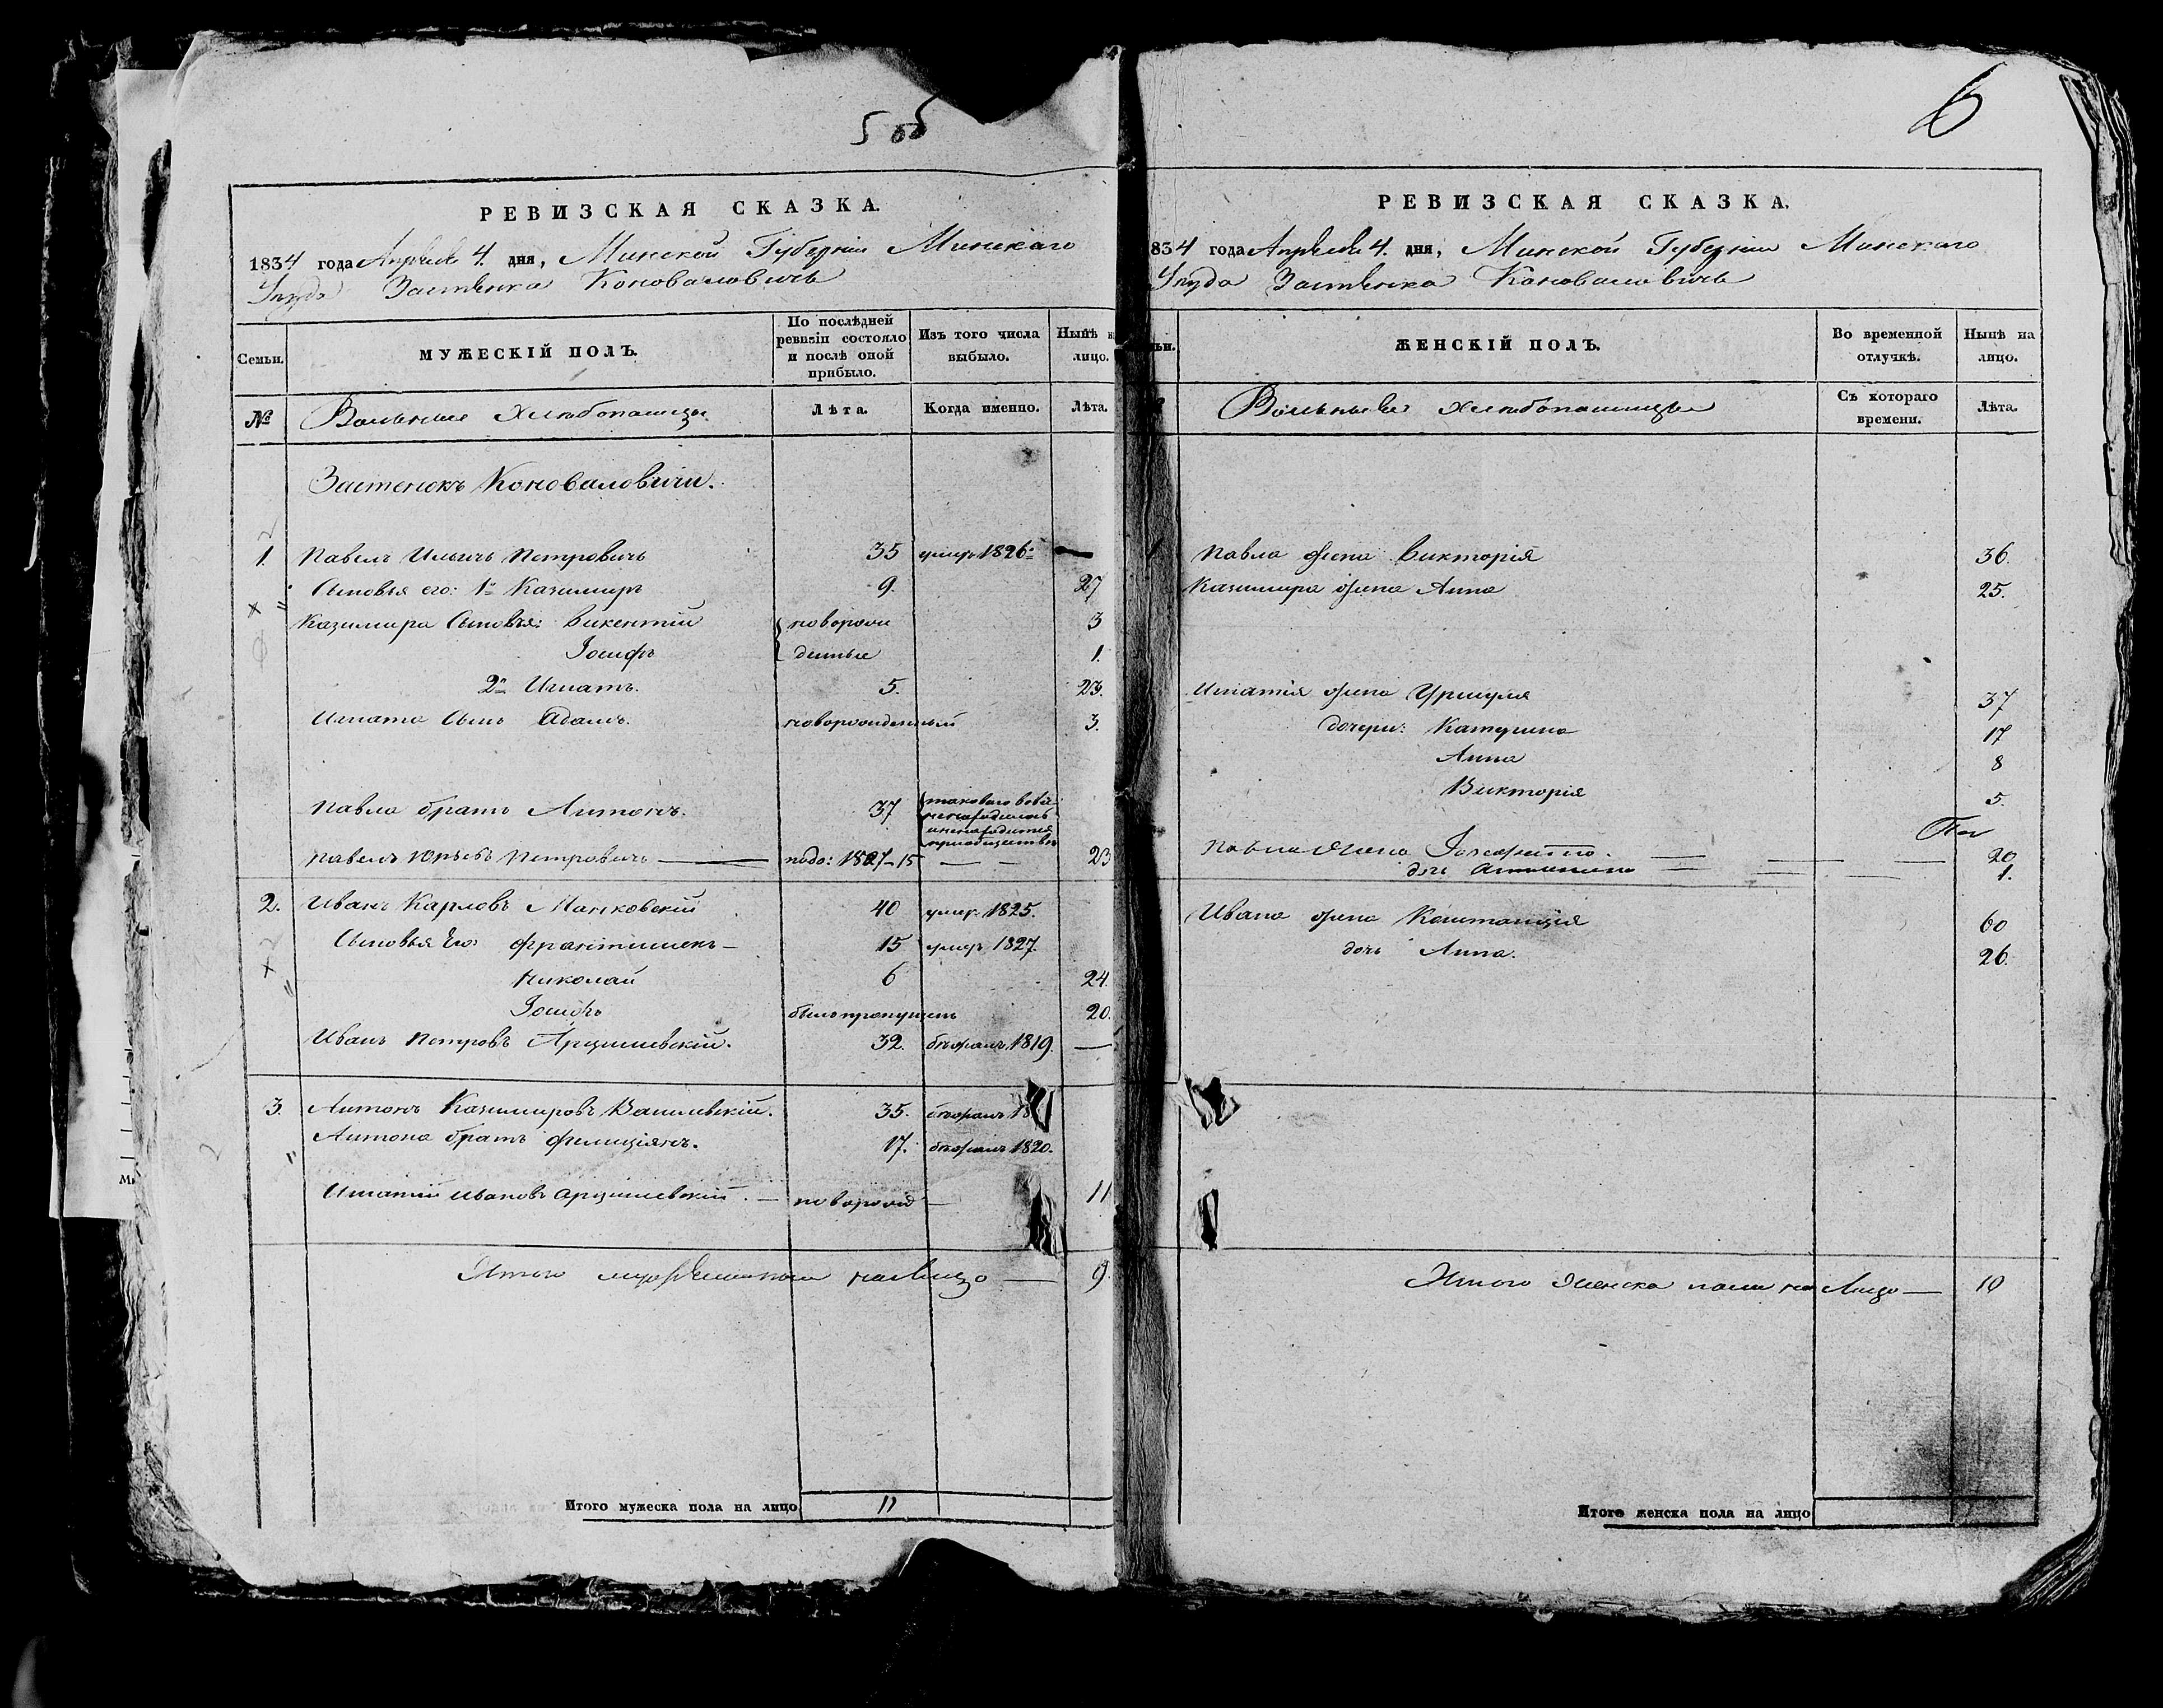 5 об
РЕВИЗСКАЯ СКАЗКА.
1834 года Апрѣля 4. дня, Минской Губерніи Минскаго
Уѣзда Застѣнка Коноваловичь
Семьи.
МУЖЕСКІЙ ПОЛЪ.
По послѣдней ревизіи состояло и послѣ оной прибыло.
Изъ того числа выбыло.
Нынѣ на лицо.
№
Вольные Хлѣбопашцы
Лѣта.
Когда именно.
Лѣта.
Застенокъ Коноваловичи.
1. Павелъ Ильичъ Петровичъ 35 умер. 1826.
Сыновья его: 1й Казимиръ 9. 27
Казимира Сыновья: Викентій новорож 3
Іосифъ денные 1.
2й Игнатъ. 5. 23.
Игната Сынъ Адамъ. новорожденный 3.
Павла братъ Антонъ. 37
Павелъ Юрьевъ Петровичъ 1827 - 15 23
2. Иванъ Карловъ Манковскій 40 умер. 1825.
Сыновья Его: Франтишекъ 15 умеръ 1827.
Николай 6 24.
Іосифъ былъ пропущенъ 20.
Иванъ Петровъ Арцишевскій. 32. бѣжалъ 1819.
3. Антонъ Казимировъ Василевскій. 35. бѣжалъ 18
Антона братъ Фелиціянъ. 17. бѣжалъ 1820.
Игнатій Ивановъ Арцишевскій. новорожд 11
Итого налицо 9
Итого мужеска пола на лицо 11
6
РЕВИЗСКАЯ СКАЗКА.
834 года Апрѣля 4. дня, Минской Губерніи Минскаго
Уѣзда Застѣнка Коноваловичь
ьи.
ЖЕНСКІЙ ПОЛЪ.
Во временной отлучкѣ.
Нынѣ на лицо.
Вольные Хлѣбопашцы
Съ котораго времени.
Лѣта.
1 Павла жена Викторія 36.
Казимира жена Анна 25.
Игнатія жена Уршуля 37
дочери: Катерина 17
Анна 8
Викторія 5.
Павла Жена 20
дочь 1.
Ивана жена Констанція 60
дочь Анна. 26.
Итого Женска пола на Лицо 10
Итого женска пола на лицо